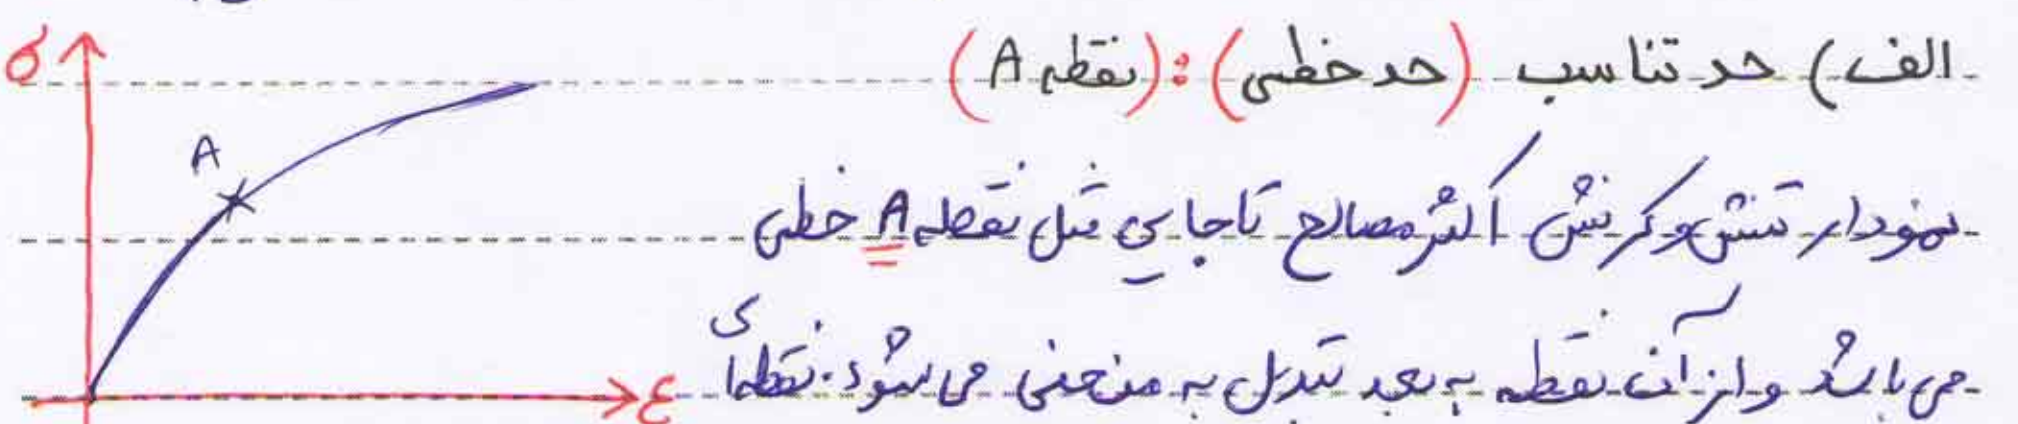 الف) حد تناسب (حد خطی): (نقطه A)
نمودار تنش و کرنش اکثر مصالح تا جایی مثل نقطه A خطی
می باشد و از آن نقطه به بعد تبدیل به منحنی می شود. نقطه ای
σ
A
ε